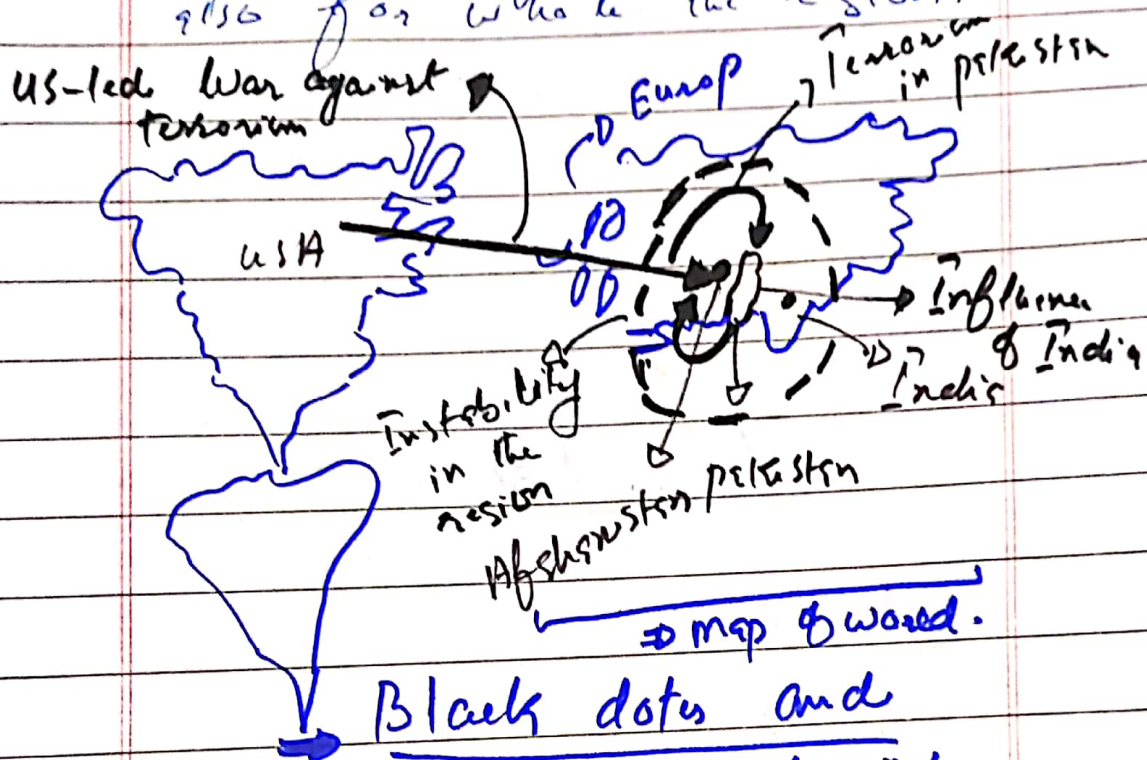 also for whole the
US-led War against
terrorism
Europ
Terrorism
in pakistan
USA
Influence
of India
India
Instability
in the
region
Afghanistan
pakistan
⇒ Map of world.
Black dots and